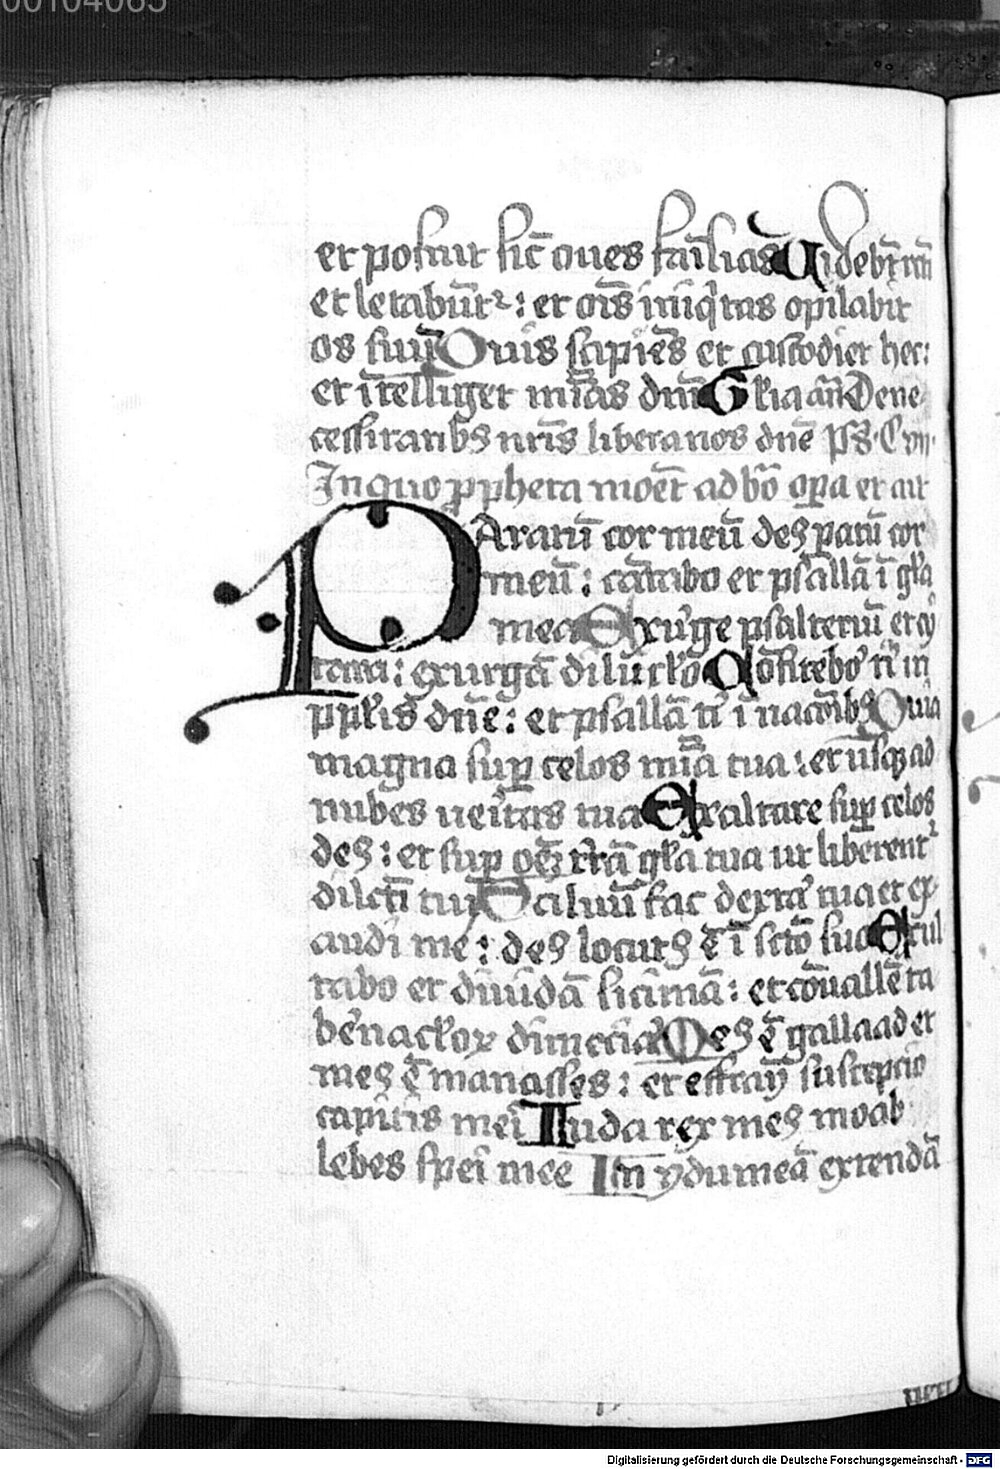 00104065
et posuit sic̄ oues fam̄iliās Uidebūt rc̄ti
et letabūtᷣ: et oīs iniq̇tas opilabit
os suū Quis sapiēs et custodiet hec:
et ītelliget mīas dn̄i Gl̄ia an̄ De ne
cessitatibꝫ nrīs libera nos dn̄e ps̄. Cvii.
In quo ꝓpheta mouēt ad bō oꝑa et ait
PAratū cor meū deꝰ ꝑatū cor
meū: cātabo et psallā ī gl̄a
mea Exurge psalteriū et cy
tara: exurgā diluclo Confitebor t̄ in
ppl̄is dn̄e: et psallā t̄ ī nac̄oībꝫ Quia
magna suꝑ celos mīa tua: et usqꝫ ad
nubes ueritas tua Exaltare suꝑ celos
deꝰ: et suꝑ oēꝫ trā gl̄a tua ut liberentᷣ
dilc̄ti tui Saluū fac dextera tua et ex
audi me: deꝰ locutꝰ ē ī sc̄to suo Exul
tabo et diuidā sicimā: et cōuallē ta
bernaclōꝝ dimeciar Meꝰ ē gallaad et
meꝰ ē manasses: et effraym suscepcio
capitis mei Iuda rex meꝰ moab
lebes spei mee In ydumeā extendā
Digitalisierung gefördert durch die Deutsche Forschungsgemeinschaft - DFG